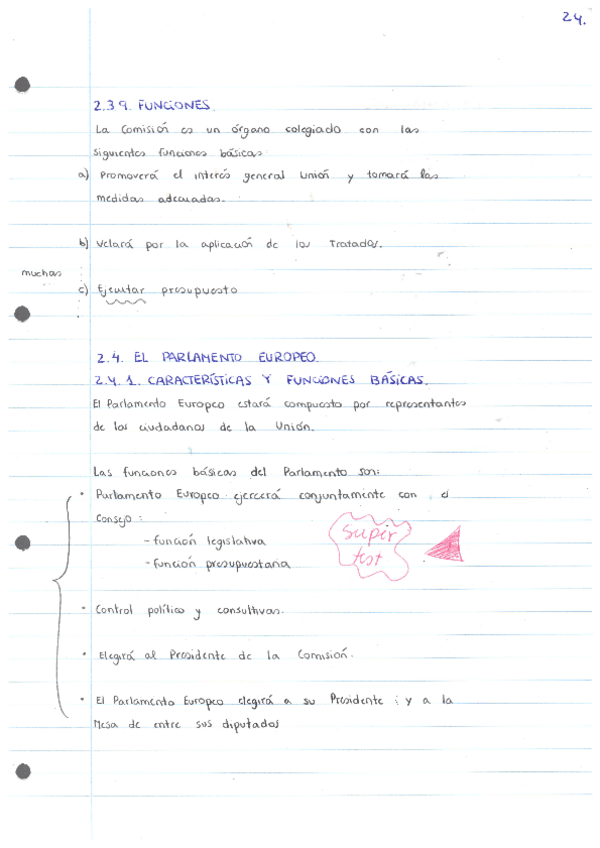 24.
2.3.9. FUNCIONES.
La Comisión es un órgano colegiado con las
siguientes funciones básicas:
a) Promoverá el interés general Unión y tomará las
medidas adecuadas.
b) Velará por la aplicación de los Tratados.
muchas
c) Ejecutar presupuesto
2.4. EL PARLAMENTO EUROPEO.
2.4.1. CARACTERÍSTICAS Y FUNCIONES BÁSICAS.
El Parlamento Europeo estará compuesto por representantes
de los ciudadanos de la Unión.
Las funciones básicas del Parlamento son:
• Parlamento Europeo ejercerá conjuntamente con el
Consejo:
- función legislativa
- función presupuestaria
super
test
• Control político y consultivas.
• Elegirá al Presidente de la Comisión.
• El Parlamento Europeo elegirá a su Presidente y a la
Mesa de entre sus diputados